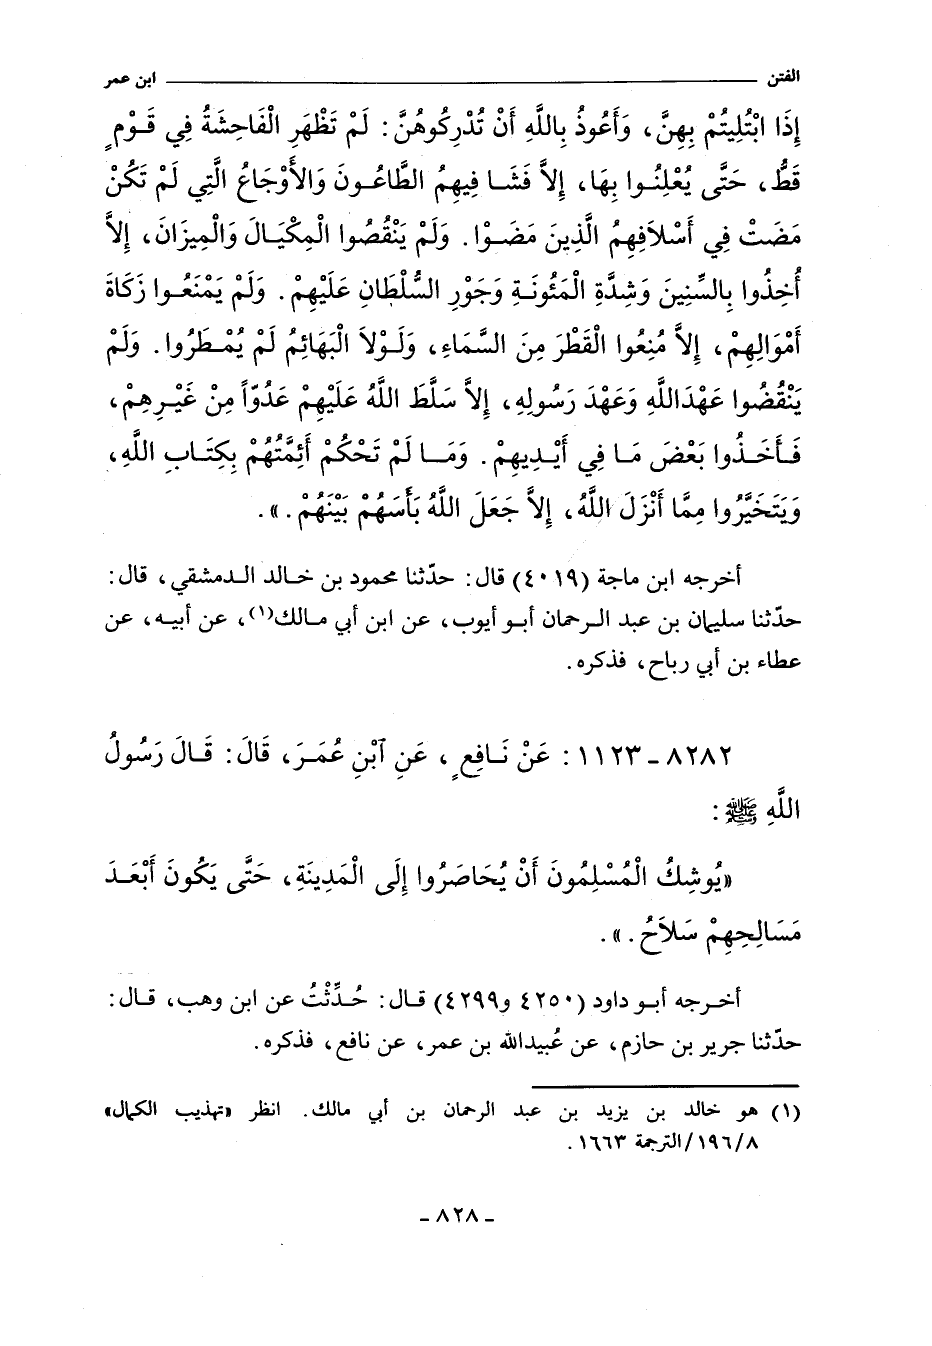 الفتن ابن عمر
إِذَا ابْتُلِيتُمْ بِهِنَّ، وَأَعُوذُ بِاللَّهِ أَنْ تُدْرِكُوهُنَّ: لَمْ تَظْهَرِ الْفَاحِشَةُ فِي قَوْمٍ
قَطُّ، حَتَّى يُعْلِنُوا بِهَا، إِلاَّ فَشَا فِيهِمُ الطَّاعُونَ وَالأَوْجَاعُ الَّتِي لَمْ تَكُنْ
مَضَتْ فِي أَسْلاَفِهِمُ الَّذِينَ مَضَوْا. وَلَمْ يَنْقُصُوا الْمِكْيَالَ وَالْمِيزَانَ، إِلاَّ
أُخِذُوا بِالسِّنِينَ وَشِدَّةِ الْمَئُونَةِ وَجَوْرِ السُّلْطَانِ عَلَيْهِمْ. وَلَمْ يَمْنَعُوا زَكَاةَ
أَمْوَالِهِمْ، إِلاَّ مُنِعُوا الْقَطْرَ مِنَ السَّمَاءِ، وَلَوْلاَ الْبَهَائِمُ لَمْ يُمْطَرُوا. وَلَمْ
يَنْقُضُوا عَهْدَاللَّهِ وَعَهْدَ رَسُولِهِ، إِلاَّ سَلَّطَ اللَّهُ عَلَيْهِمْ عَدُوّاً مِنْ غَيْرِهِمْ،
فَأَخَذُوا بَعْضَ مَا فِي أَيْدِيهِمْ. وَمَا لَمْ تَحْكُمْ أَئِمَّتُهُمْ بِكِتَابِ اللَّهِ،
وَيَتَخَيَّرُوا مِمَّا أَنْزَلَ اللَّهُ، إِلاَّ جَعَلَ اللَّهُ بَأْسَهُمْ بَيْنَهُمْ.».
أخرجه ابن ماجة (٤٠١٩) قال: حدّثنا محمود بن خالد الدمشقي، قال:
حدّثنا سليمان بن عبد الرحمان أبو أيوب، عن ابن أبي مالك(١)، عن أبيه، عن
عطاء بن أبي رباح، فذكره.
٨٢٨٢ - ١١٢٣: عَنْ نَافِعٍ، عَنِ ٱبْنِ عُمَرَ، قَالَ: قَالَ رَسُولُ
اللَّهِ ﷺ:
«يُوشِكُ الْمُسْلِمُونَ أَنْ يُحَاصَرُوا إِلَى الْمَدِينَةِ، حَتَّى يَكُونَ أَبْعَدَ
مَسَالِحِهِمْ سَلاَحُ.».
أخرجه أبو داود (٤٢٥٠ و٤٢٩٩) قال: حُدِّثْتُ عن ابن وهب، قال:
حدّثنا جرير بن حازم، عن عُبيدالله بن عمر، عن نافع، فذكره.
(١) هو خالد بن يزيد بن عبد الرحمان بن أبي مالك. انظر «تهذيب الكمال»
٨/١٩٦/الترجمة ١٦٦٣.
- ٨٢٨ -